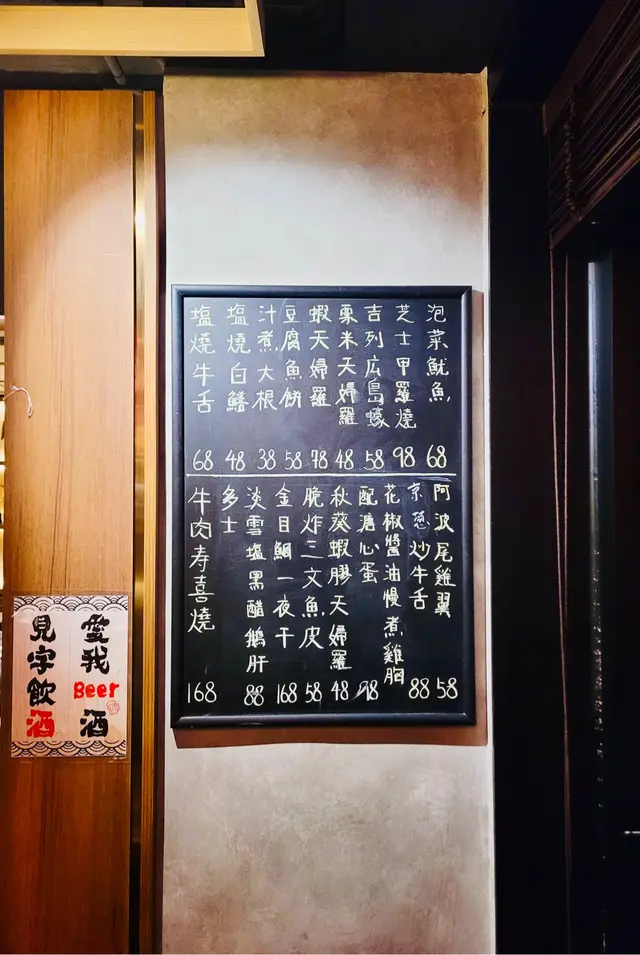 泡菜魷魚 68
芝士甲羅燒 98
吉列広島蠔 58
粟米天婦羅 48
蝦天婦羅 78
豆腐魚餅 58
汁煮大根 38
塩燒白鱔 48
塩燒牛舌 68
阿波尾雞翼 58
京葱炒牛舌 88
花椒醬油慢煮雞胸
配溏心蛋
秋葵蝦膠天婦羅 48
脆炸三文魚皮 58
金目鯛一夜干 168
淡雪塩黑醋鵝肝
多士 88
牛肉寿喜燒 168
愛我Beer酒
見字飲酒